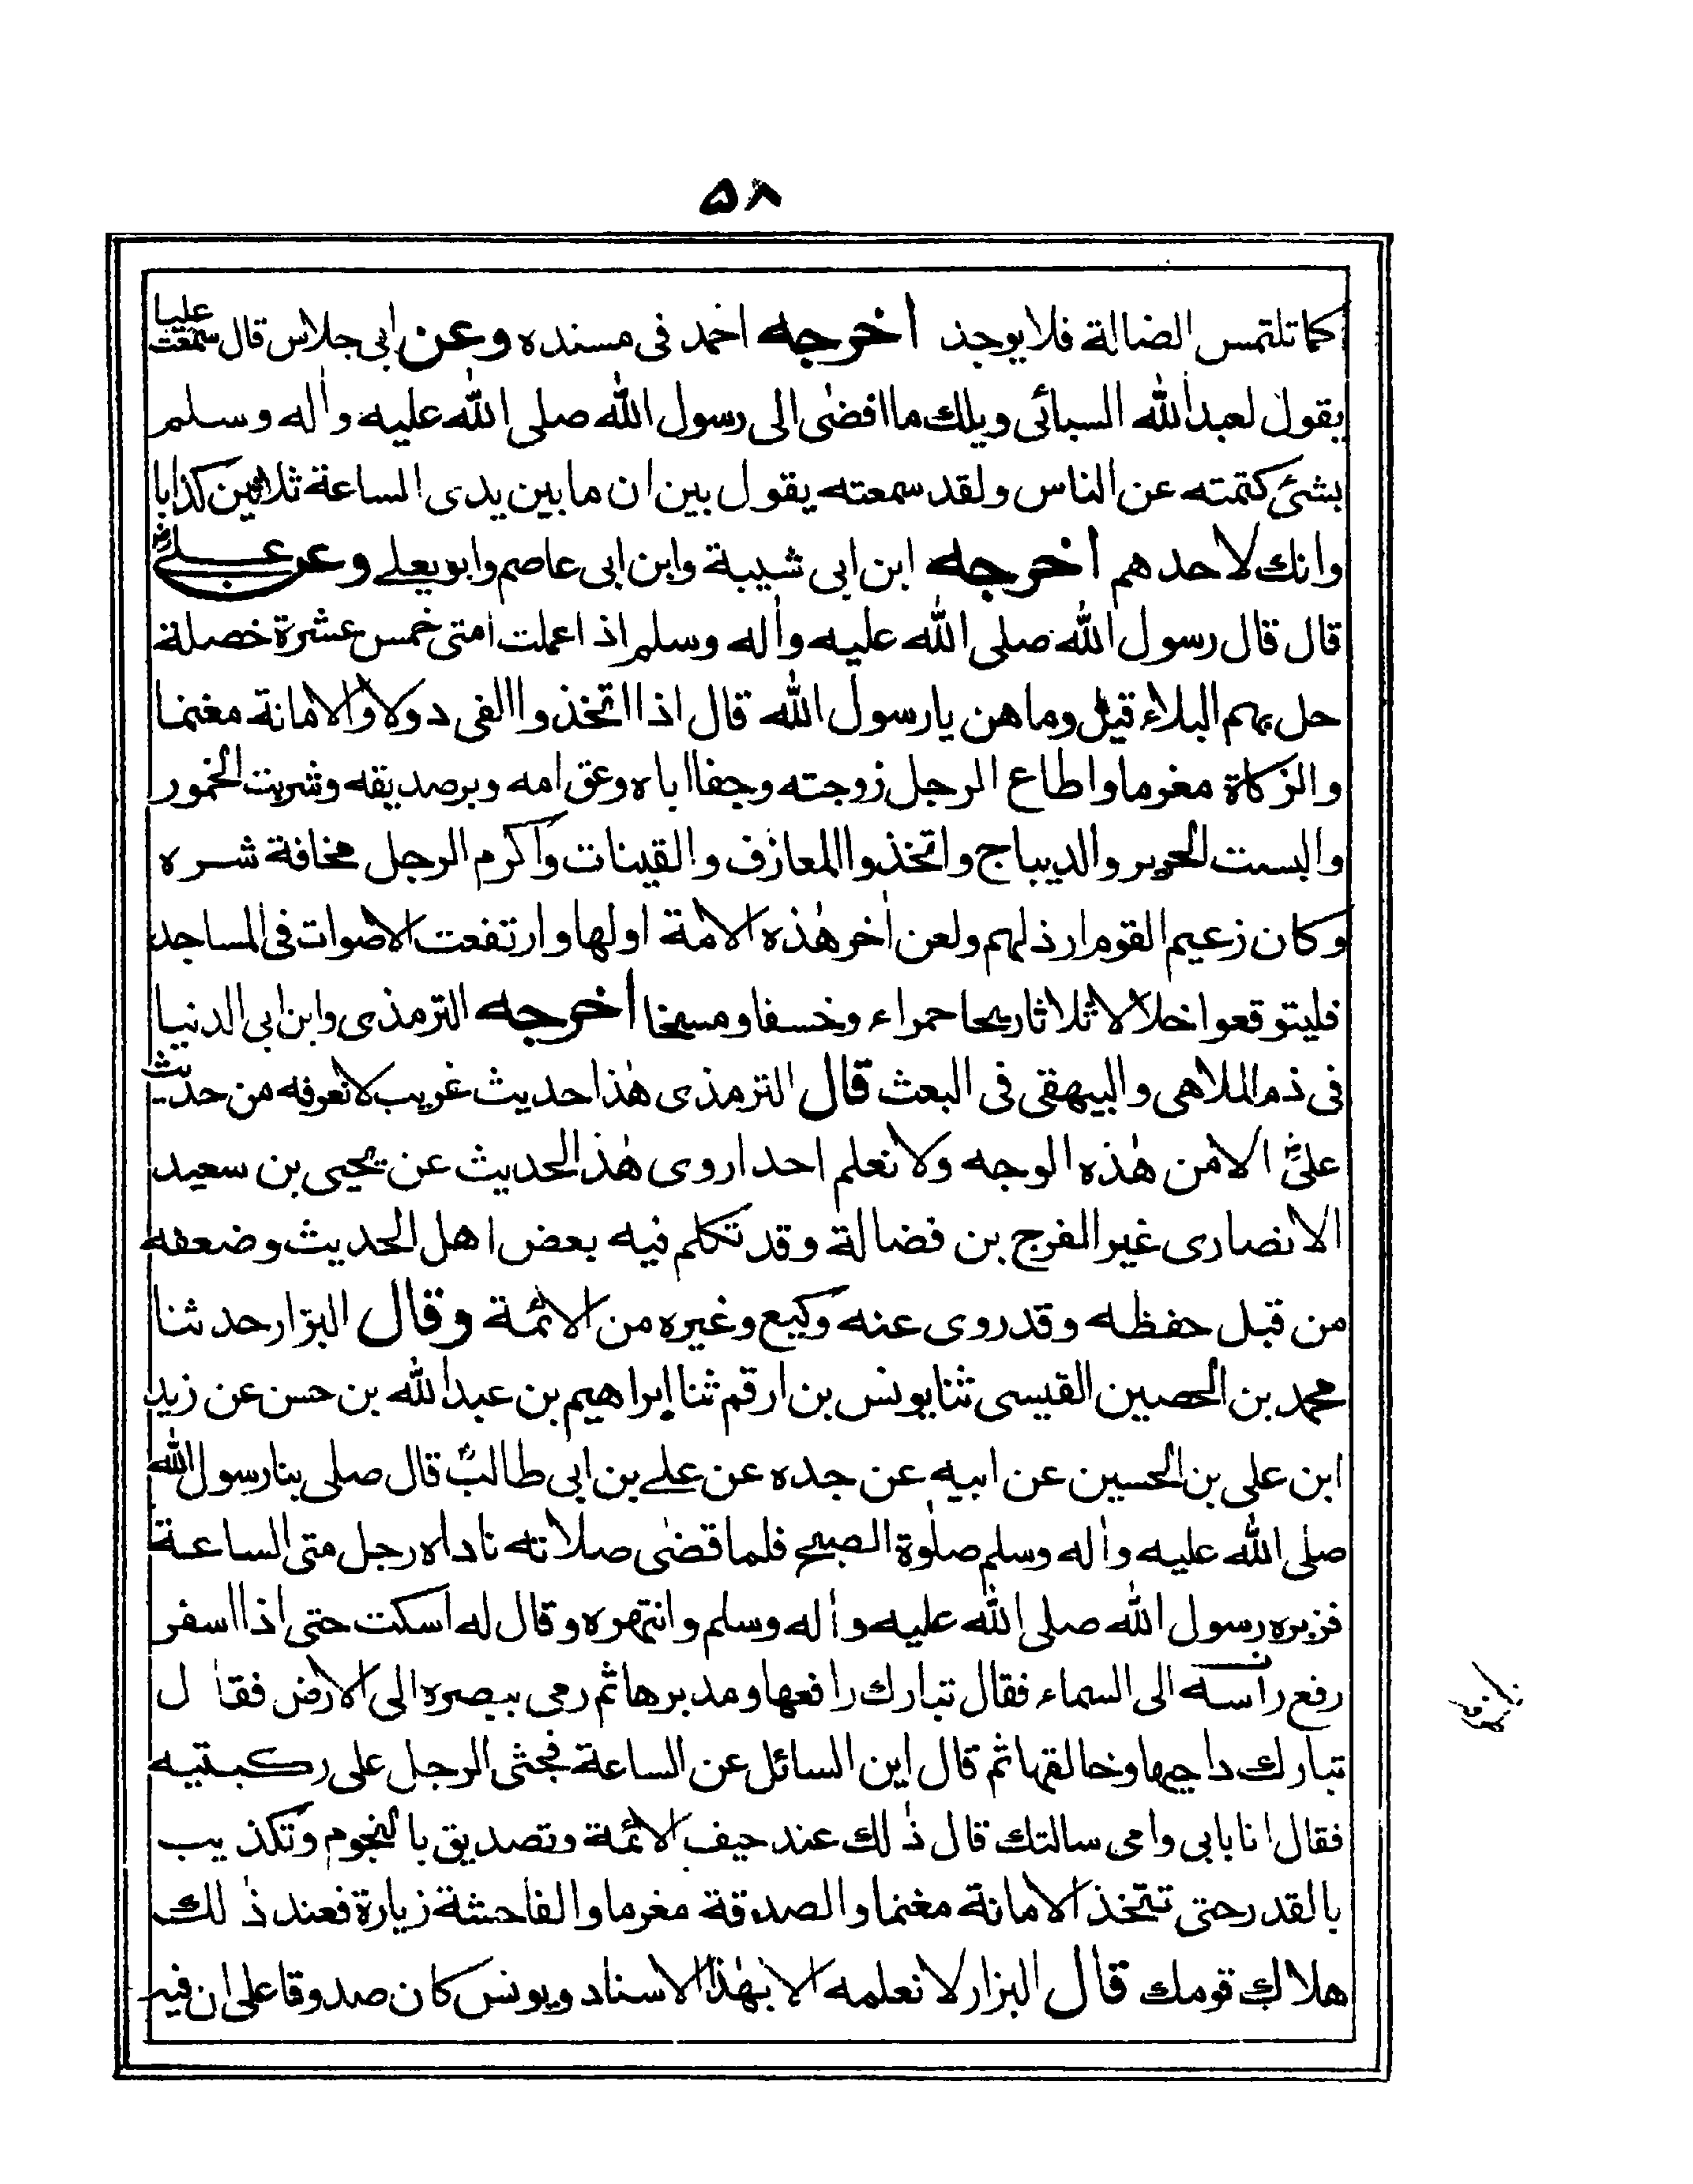 ٥٨
كما تلتمس الضالة فلا يوجد أخرجه احمد فى مسنده وعن ابى جلاس قال سمعت عليا
يقول لعبد الله السبائى ويلك ما افضى الى رسول الله صلى الله عليه واله وسلم
بشئ كتمته عن الناس ولقد سمعته يقول بين ان ما بين يدى الساعة ثلاثين كذابا
وانك لاحدهم أخرجه ابن ابى شيبة وابن ابى عاصم وابو يعلے وعن علے رض
قال قال رسول الله صلى الله عليه واله وسلم اذا عملت امتى خمس عشرة خصلة
حل بهم البلاء قيل وما هن يا رسول الله قال اذا اتخذوا الفى دولا والامانة مغنما
والزكاة مغرما واطاع الرجل زوجته وجفا اباه وعق امه وبر صديقه وشربت الخمور
والبست الحرير والديباج واتخذوا المعازف والقينات واكرم الرجل مخافة شره
وكان زعيم القوم ارذلهم ولعن اخر هذه الامة اولها وارتفعت الاصوات فى المساجد
فليتوقعوا خلالا ثلاثا ريحا حمراء وخسفا ومسخا أخرجه الترمذى وابن ابى الدنيا
فى ذم الملاهى والبيهقى فى البعث قال الترمذى هذا حديث غريب لا نعرفه من حديث
على رض الا من هذه الوجه ولا نعلم احدا روى هذ الحديث عن يحيى بن سعيد
الانصارى غير الفرج بن فضالة وقد تكلم فيه بعض اهل الحديث وضعفه
من قبل حفظه وقد روى عنه وكيع وغيره من الائمة وقال البزار حدثنا
محمد بن الحصين القيسى ثنا يونس بن ارقم ثنا ابراهيم بن عبد الله بن حسن عن زيد
ابن على بن الحسين عن ابيه عن جده عن علے بن ابى طالب قال صلى بنا رسول الله
صلى الله عليه واله وسلم صلوة الصبح فلما قضى صلاته ناداه رجل متى الساعة
فزبره رسول الله صلى الله عليه واله وسلم وانتهره وقال له اسكت حتى اذا اسفر
رفع راسه الى السماء فقال تبارك رافعها ومدبرها ثم رمى ببصره الى الارض فقال
تبارك داحيها وخالقها ثم قال اين السائل عن الساعة فجثى الرجل على ركبتيه
فقال انا بابى وامى سالتك قال ذلك عند حيف الائمة وتصديق بالنجوم وتكذيب
بالقدر حتى تتخذ الامانة مغنما والصدقة مغرما والفاحشة زيارة فعند ذلك
هلاك قومك قال البزار لا نعلمه الا بهذا الاسناد ويونس كان صدوقا على ان فيه